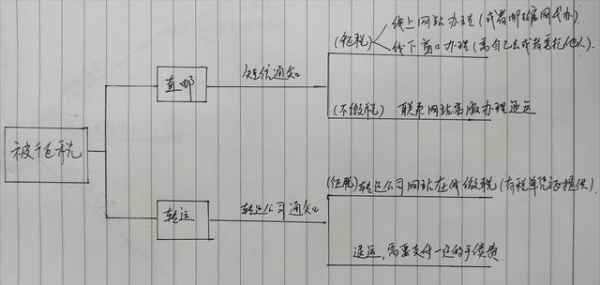 (征税) 线上网站办理(或者邮政网代办)
线下窗口办理(需自己去或者委托他人)
直邮 短信通知
(不缴税) 联系网站客服办理退运
被包税
(征税)转运公司网站在线缴税(有税单凭证提供)
转运 转运公司通知
退运,需要支付一定的手续费